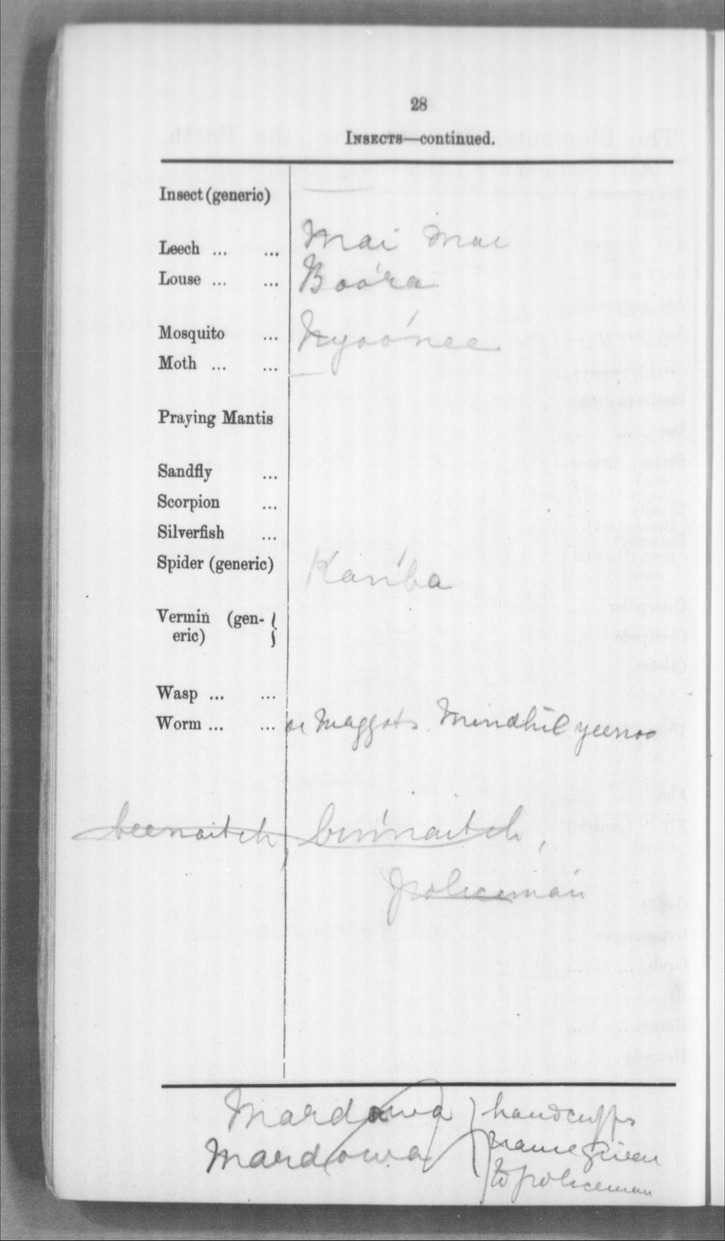 28
INSECTS—continued.
Insect (generic) —
Leech ... ... Mai Mai
Louse ... ... Boo'ra
Mosquito ... Nyoo'nee
Moth ... ... —
Praying Mantis
Sandfly ...
Scorpion ...
Silverfish ...
Spider (generic) Kan'ba
Vermin (gen-
eric)
Wasp ... ...
Worm ... ... or Maggots. Mindhil yeernoo
beenaitch, bin'naitch,
policeman
Mardawa } handcuffs
Mardowa } name given
to policeman